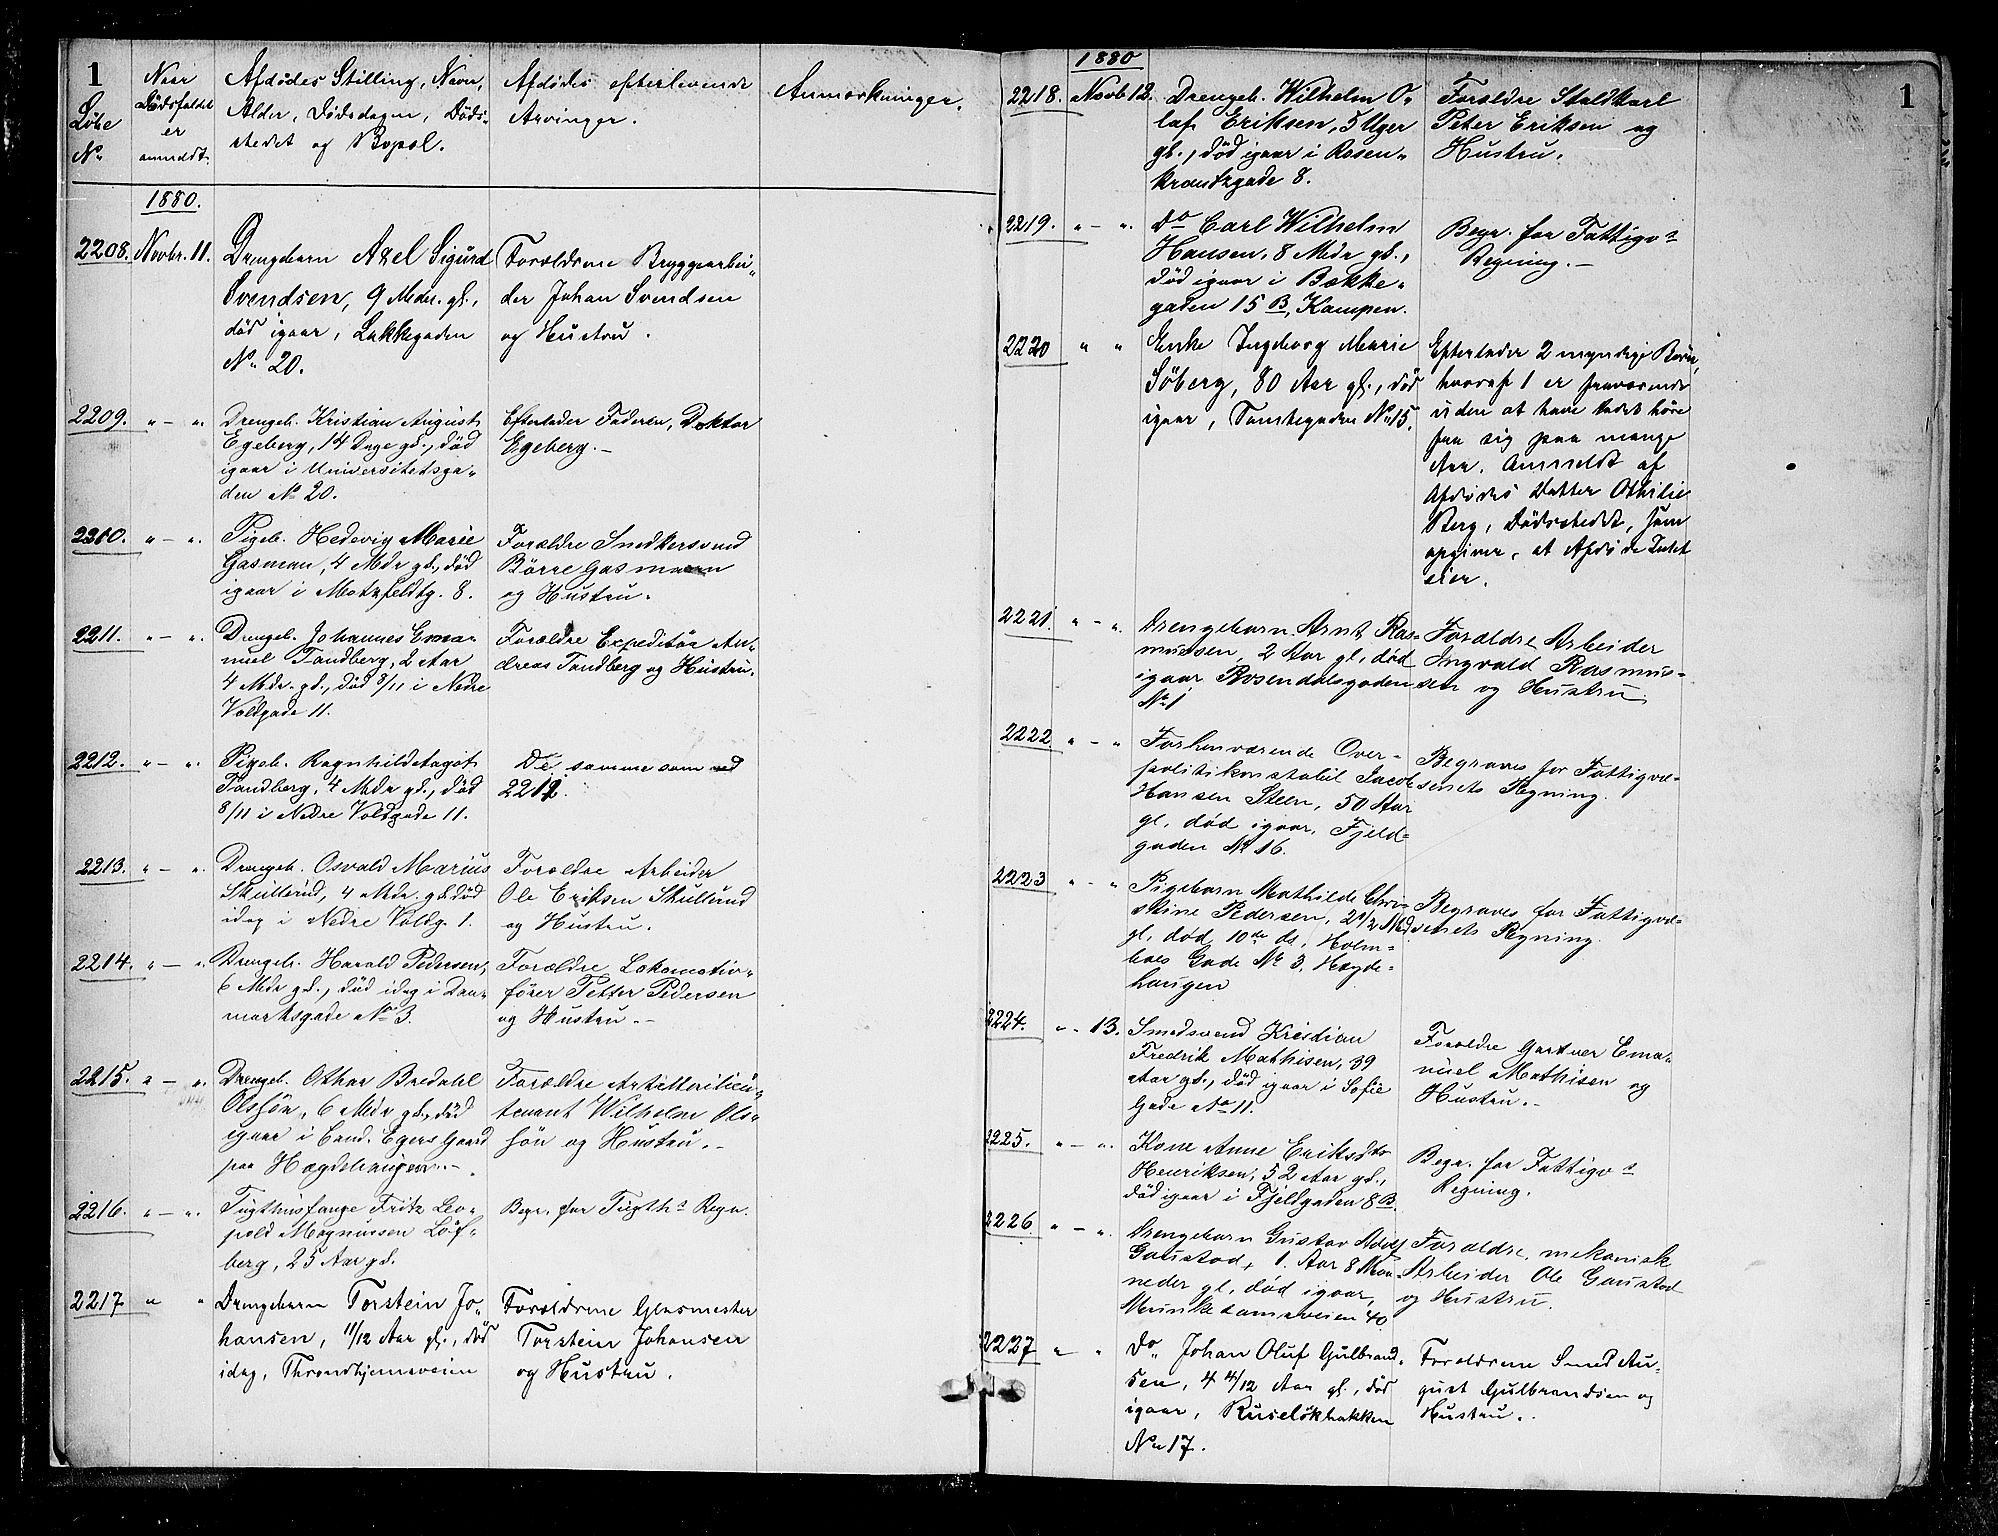 1
Løbe
No
Naar
Dødsfaldet
er
anmeldt.
Afdødes Stilling, Navn,
Alder, Dødsdagen, Døds-
stedet og Bopæl.
Afdødes efterlevende
Arvinger.
Anmærkninger.
1880.
2208. Novbr. 11.
Drengebarn Axel Sigurd
Svendsen, 9 Mdr. gl.,
død igaar, Lakkegaden
No 20.
Forældrene Bryggearbei-
der Johan Svendsen
og Hustru.
2209. " - ".
Drengeb. Kristian August
Egeberg, 14 Dage gl., død
igaar i Universitetsga-
den No 20.
Efterlader Faderen, Doktor
Egeberg. -
2210. " - ".
Pigeb. Hedevig Marie
Gasman, 4 Mdr gl., død
igaar i Motzfeldtg. 8.
Forældre Snedkersvend
Börre Gasmann
og Hustru.
2211. " - ".
Drengeb. Johannes Ema-
nuel Tandberg, 2 Aar
4 Mdr. gl., død 8/11 i Nedre
Voldgade 11.
Forældre Expeditör An-
dreas Tandberg og Hustru.
2212. " - ".
Pigeb. Ragnhild
Tandberg, 4 Mdr gl., død
8/11 i Nedre Voldgade 11.
De samme som ved
2211.
2213. " - ".
Drengeb. Osvald Marius
Skullerud, 4 Mdr. gl. død
idag i Nedre Voldg. 1.
Forældre Arbeider
Ole Eriksen Skullerud
og Hustru.
2214. " - ".
Drengeb. Harald Pedersen,
6 Mdr gl., død idag i Dan-
marksgade No 3.
Forældre Lokomotiv-
fører Petter Pedersen
og Hustru. -
2215. " - ".
Drengeb. Othar Bredahl
Olssön, 6 Mdr gl., død
igaar i Cand. Egers Gaard
paa Hægdehaugen. -
Forældre Artillerilieu-
tenant Wilhelm Ols-
sön og Hustru. -
2216. " - ".
Tugthusfange Fritz Leo-
pold Magnussen Löf-
berg, 25 Aar gl.
Begr. for Tugths Regn.
2217 " "
Drengebarn Torstein Jo-
hansen, 11/12 Aar gl., død
idag, Throndhjemsveien
Forældrene Glasmester
Torstein Johansen
og Hustru.
1
1880
2218. Novb 12.
Drengeb. Wilhelm O-
laf Eriksen, 5 Uger
gl., død igaar i Rosen-
krantzgade 8.
Forældre Staldkarl
Peter Eriksen og
Hustru.
2219. " - ".
Do Carl Wilhelm
Hansen, 8 Mdr gl.,
død igaar i Bække-
gaden 15 B, Kampen.
Begr. for Fattigvs
Regning. -
2220 " "
Enke Ingeborg Marie
Söberg, 80 Aar gl., død
igaar, Tomtegaden No 15.
Efterlader 2 myndige Börn,
hvoraf 1 er fraværende
uden at have ladet høre
fra sig paa mange
Aar. Anmeldt af
Afdødes Datter Othilie
Berg, Dødsstedet, som
opgiver, at Afdøde Intet
eier.
2221. " - ".
Drengebarn Arnt Ras-
mussen, 2 Aar gl, død
igaar Rosendalsgaden
No 1
Forældre Arbeider
Ingvald Rasmus-
sen og Hustru
2222 " - "
Forhenværende Over-
politikonstabel Jacob
Hansen Steen, 50 Aar
gl, død igaar, Fjeld-
gaden No 16.
Begraves for Fattigvæ-
senets Regning.
2223 " - "
Pigebarn Mathilde Chri-
stine Pedersen, 2 1/2 Mdr
gl, død 10de ds, Holm-
boes Gade No 3, Hægde-
haugen
Begraves for Fattigvæ-
senets Regning.
2224. " - 13.
Smedsvend Kristian
Fredrik Mathisen, 39
Aar gl., død igaar i Sofie
Gade No 11.
Forældre Gartner Ema-
nuel Mathisen og
Hustru. -
2225. " - ".
Kone Anne Eriksdtr
Henriksen, 52 Aar gl.,
død igaar i Fjeldgaden 8 B.
Begr. for Fattigvs
Regning.
2226 " - ".
Drengebarn Gustav Adolf
Gaustad, 1. Aar 8 Maa-
neder gl, død igaar,
Munkedamsveien 40.
Forældre, mekanisk
Arbeider Ole Gaustad
og Hustru.
2227 " "
Do Johan Oluf Gulbrand-
sen, 4 4/12 Aar gl., død
igaar, Ruseløkbakken
No 17.
Forældrene Smed Au-
gust Gulbrandsen og
Hustru.